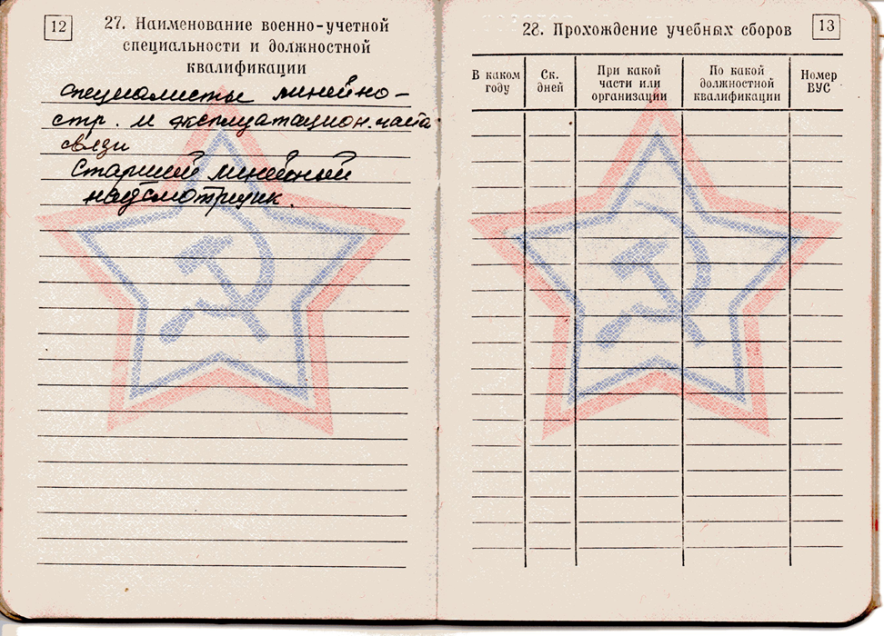 12
27. Наименование военно-учетной
специальности и должностной
квалификации
специалисты линейно-
стр. и эксплуатацион. части
связи
Старший линейный
надсмотрщик.
28. Прохождение учебных сборов
13
В каком году
Ск. дней
При какой части или организации
По какой должностной квалификации
Номер ВУС